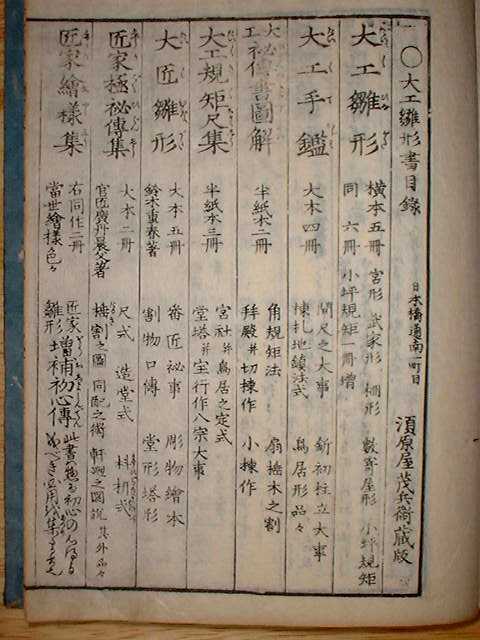 〇大工雛形書目録
日本橋通南一町目
須原屋茂兵衛蔵版
大工雛形
横本五冊 宮形 武家形 棚形 数寄屋形 小坪規矩
同 六冊 小坪規矩一冊増
大工手鑑
大本四冊
間尺之大事 釿初柱立大事
棟札地鎮法式 鳥居形品々
大工秘傳書圖解
半紙本二冊
角規矩法 扇椽木之割
拜殿并切棟作 小棟作
大工規矩尺集
半紙本三冊
宮社并鳥居之定式
堂塔并宝行作八宗大事
大匠雛形
大本五冊
鈴木重春著
番匠秘事 彫物繪本
割物口傳 堂形塔形
匠家極秘傳集
大本二冊
官匠廣丹晨父著
尺式 造堂式 枓栱式
棧割之圖 同配之術 軒廻之圖説 其外品々
匠家繪様集
右同作二冊
當世繪様色々
匠家雛形増補初心傳
此書